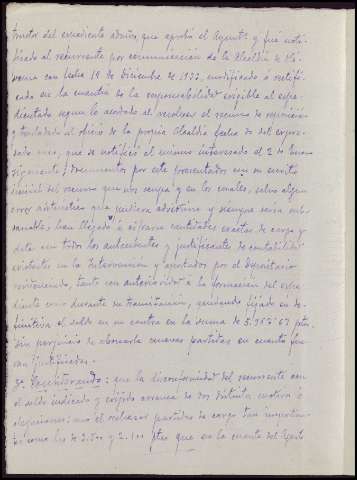 tructor del expediente aludido, que aprobó el Ayuntº y fué noti-
ficado al recurrente por comunicación de la Alcaldía de
con fecha 19 de Diciembre de 1932, modificando ó rectifi-
cando en la cuantía de la responsabilidad exigible al expe-
dientado según lo acordado al resolver el recurso de reposición
y trasladado al oficio de la propia Alcaldía fecha de del expre-
sado mes, que se notificó al mismo interesado el 2 de Enero
siguiente; documentos por este presentados con su escrito
inicial del recurso que nos ocupa y en los cuales, salvo algun
error aritmetico que pudiera advertirse y siempre sería sub-
sanable, han llegado á fijarse cantidades exactas de cargo y
data con todos los antecedentes y justificantes de contabilidad
existentes en la Intervención y aportados por el Depositario
, tanto con anterioridad á la formación del expe-
diente como durante su tramitación, quedando fijado en de-
finitiva el saldo en su contra en la suma de 5.962'67 ptas.
sin perjuicio de abonarle nuevas partidas en cuanto fue-
ran justificadas.
3º Considerando: que la disconformidad del recurrente con
el saldo indicado y exijido arranca de dos distintos motivos ó
alegaciones: uno el rechazar partidas de cargo tan importan-
tes como las de 2.500 y 2.100 ptas que en la cuenta del Gesto